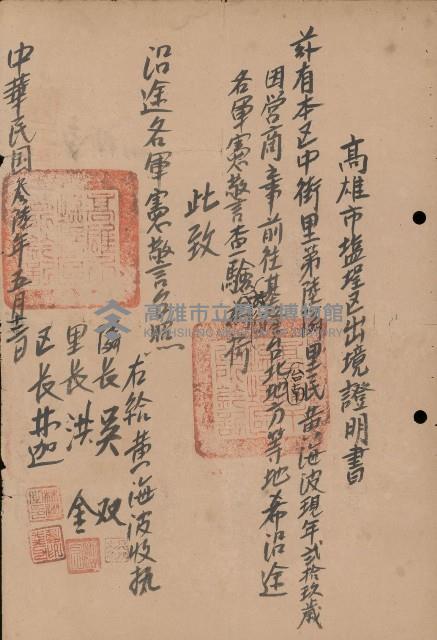 高雄市塩埕区出境證明書
茲有本区中街里第陸鄰里民黃海波現年貳拾玖歲
因營商事前往基隆台北台南地方等地希沿途
各軍憲警查驗放行為荷
此致
沿途各軍憲警台照
右給黃海波收執
鄰長吳双
里長洪金
区長林迦
中華民国叁陸年五月廿三日
高雄市立歷史博物館
KAOHSIUNG MUSEUM OF HISTORY